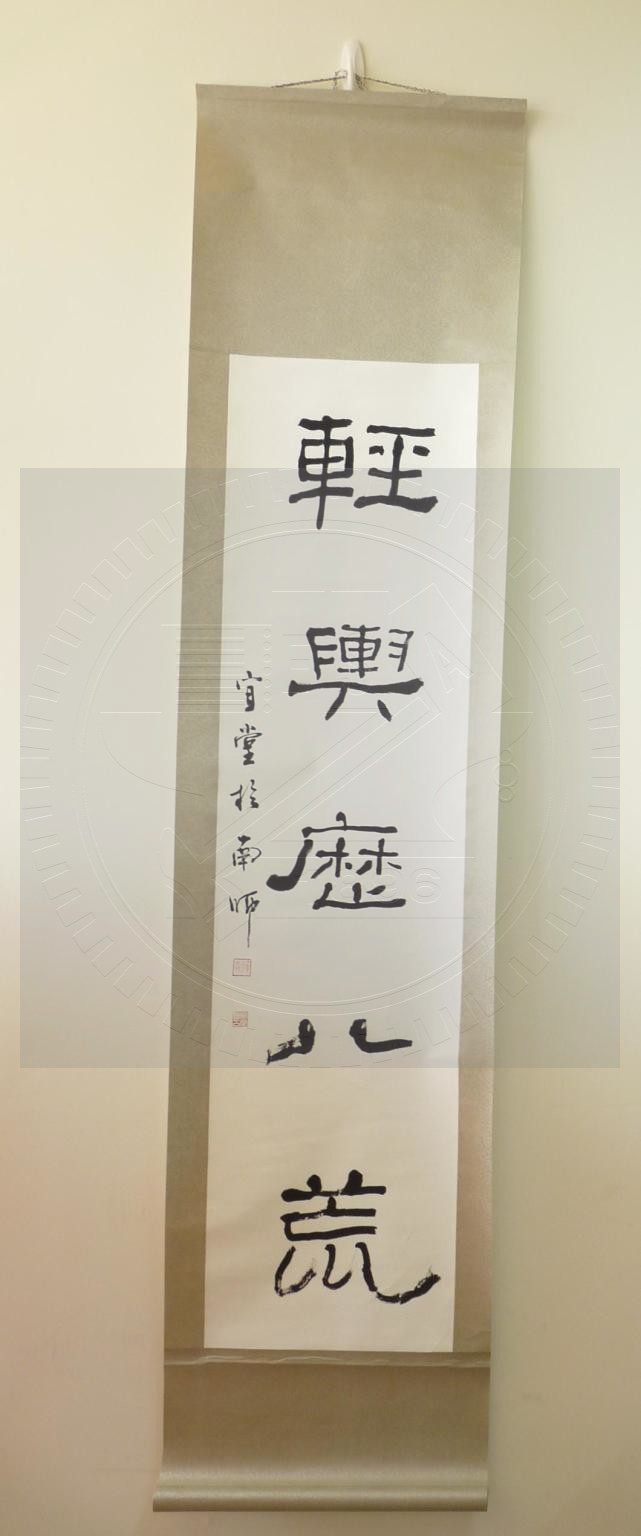 輕輿歷八荒
宜堂於南師